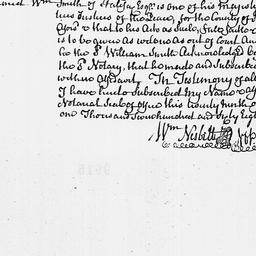 and Wm Smith of Stalyng Esqr is one of his Majestys
tices Justices of the Peace, for the County of
Afors. & that to his Acts as such, full Faith &
is to be given as well in as out of Court And
he the sd William Smith Acknowledged be
the sd Notary, that he made and Subscribed
within Affidavit. In Testimony of
I have hereto Subscribed my Name & Aff
Notarial Seal of office this twenty ninth
one Thousand Seven hundred and Sixty Eigh
Wm Nisbett